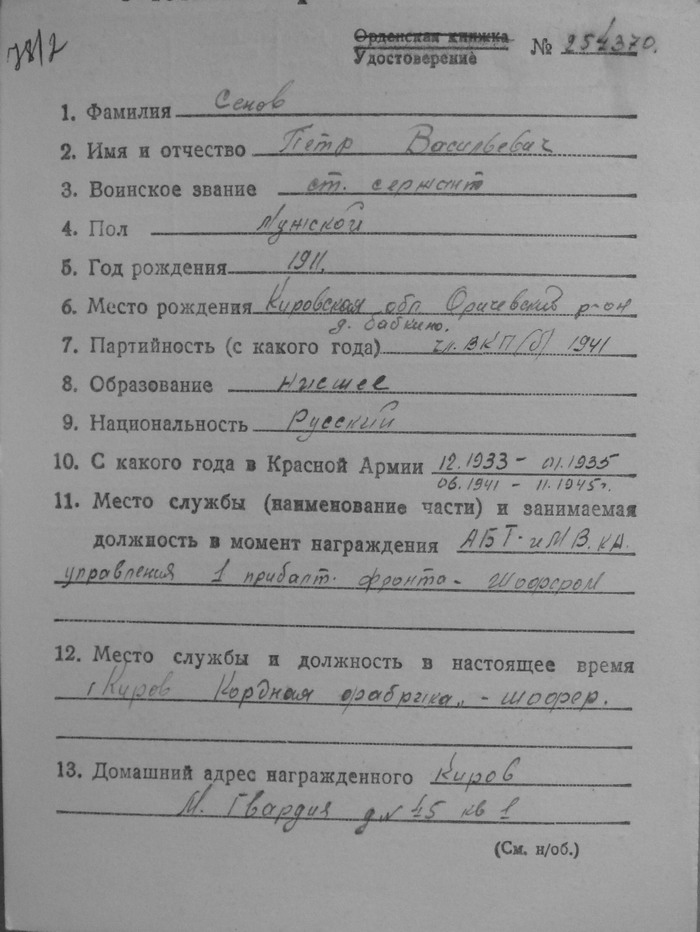 78/2
Орденская книжка
Удостоверение № 254370.
1. Фамилия Сенов
2. Имя и отчество Петр Васильевич
3. Воинское звание ст. сержант
4. Пол Мужской
5. Год рождения 1911.
6. Место рождения Кировская обл Оричевский р-он
д. Бабкино.
7. Партийность (с какого года) чл. ВКП(б) 1941
8. Образование низшее
9. Национальность Русский
10. С какого года в Красной Армии 12.1933 - 01.1935
06.1941 - 11.1945г.
11. Место службы (наименование части) и занимаемая
должность в момент награждения АБТ. и МВ. КА.
управления 1 прибалт. фронта - шофером
12. Место службы и должность в настоящее время
г Киров Кордная фабрика„ - шофер.
13. Домашний адрес награжденного Киров
М. Гвардия д. № 45 кв 1
(См. н/об.)